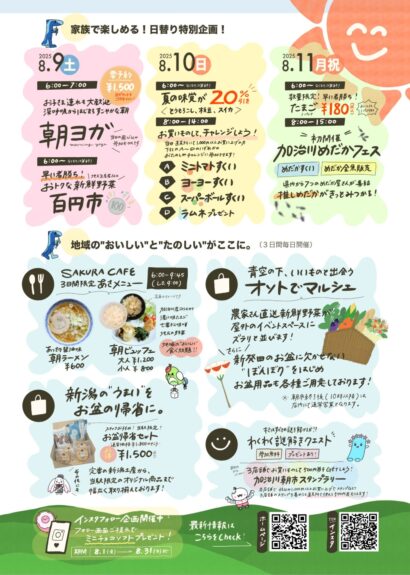 家族で楽しめる！日替り特別企画！
2025
8.9土
6:00～7:00
¥1,500
朝ヨガ
6:00～
早い者勝ち！
おトクな新鮮野菜
百円市
2025
8.10日
6:00～
夏の味覚が20%引き
くとうもろこし、枝豆、スイカ
8:00～14:00
お買いものして、チャレンジしよう！
A ミニトマトすくい
B ヨーヨーすくい
C スーパーボールすくい
D ラムネプレゼント
2025
8.11月祝
6:00～
数量限定！早い者勝ち！
たまご ¥180
8:00～15:00
初開催
加治川めだかフェス
めだかすくい
めだか金魚販売
推しめだかがきっとみつかる！
地域の"おいしい"と"たのしい"がここに。（3日間毎日開催）
SAKURA CAFE
3日間限定 あさメニュー
6:00-9:45
(L.O. 9:00)
あっさり醤油味
朝ラーメン
¥600
朝ビュッフェ
大人 ¥1,200
小人 ¥800
青空の下、いいものと出会う
オソトでマルシェ
農家さん直送新鮮野菜が
屋外のイベントスペースに
ズラリと並びます！
さらに
新発田のお盆に欠かせない
"ぼんぼり"をはじめ
お盆用品も各種ご用意しております！
新潟の"うまい"を
お盆の帰省に。
お盆帰省セット
¥1,500
定番の新潟土産から、
当駅限定のオリジナル商品まで
幅広く取り揃えております！
わくわく謎解きクエスト
参加無料
プレゼントあり！
加治川朝市スタンプラリー
インスタフォロー企画開催中
フォロー画面ご提示で
ミニチョコソフトプレゼント！
期間：8.1(金)～8.31(日)
最新情報は
こちらをCheck！
ホームページ
インスタ